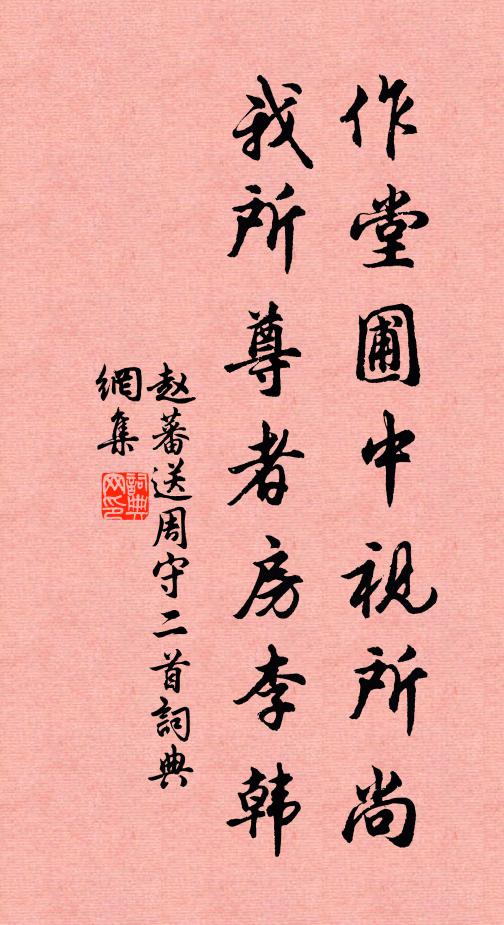 作堂圃中視所尚
我所尊者房李韩
赵蕃送周守二首詞典
網集
詞典
网印